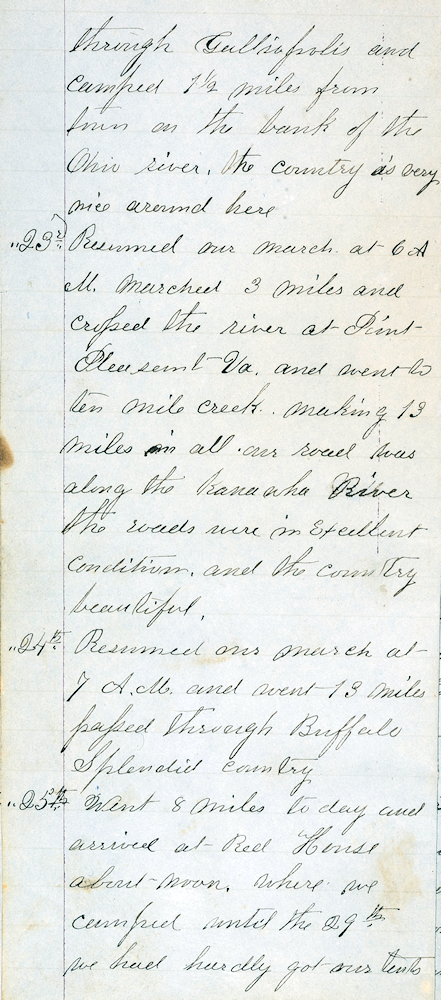 through Gallsopolis and
camped 1½ miles from
town on the bank of the
Ohio river, the country is very
nice around here
" 23rd Resumed our march at 6 A
M. marched 3 miles and
crossed the river at Point
Pleasent Va. and went to
ten mile creek. making 13
miles in all. our road was
along the kanawha River
the roads were in Excellent
Condition. and the country
beautiful.
" 24th Resumed our march at
7 A.M. and went 13 miles
passed through Buffalo
Splendid country
" 25th Want 8 miles to day and
arrived at Red House
about noon. where we
camped until the 29th.
we had hardly got our tents